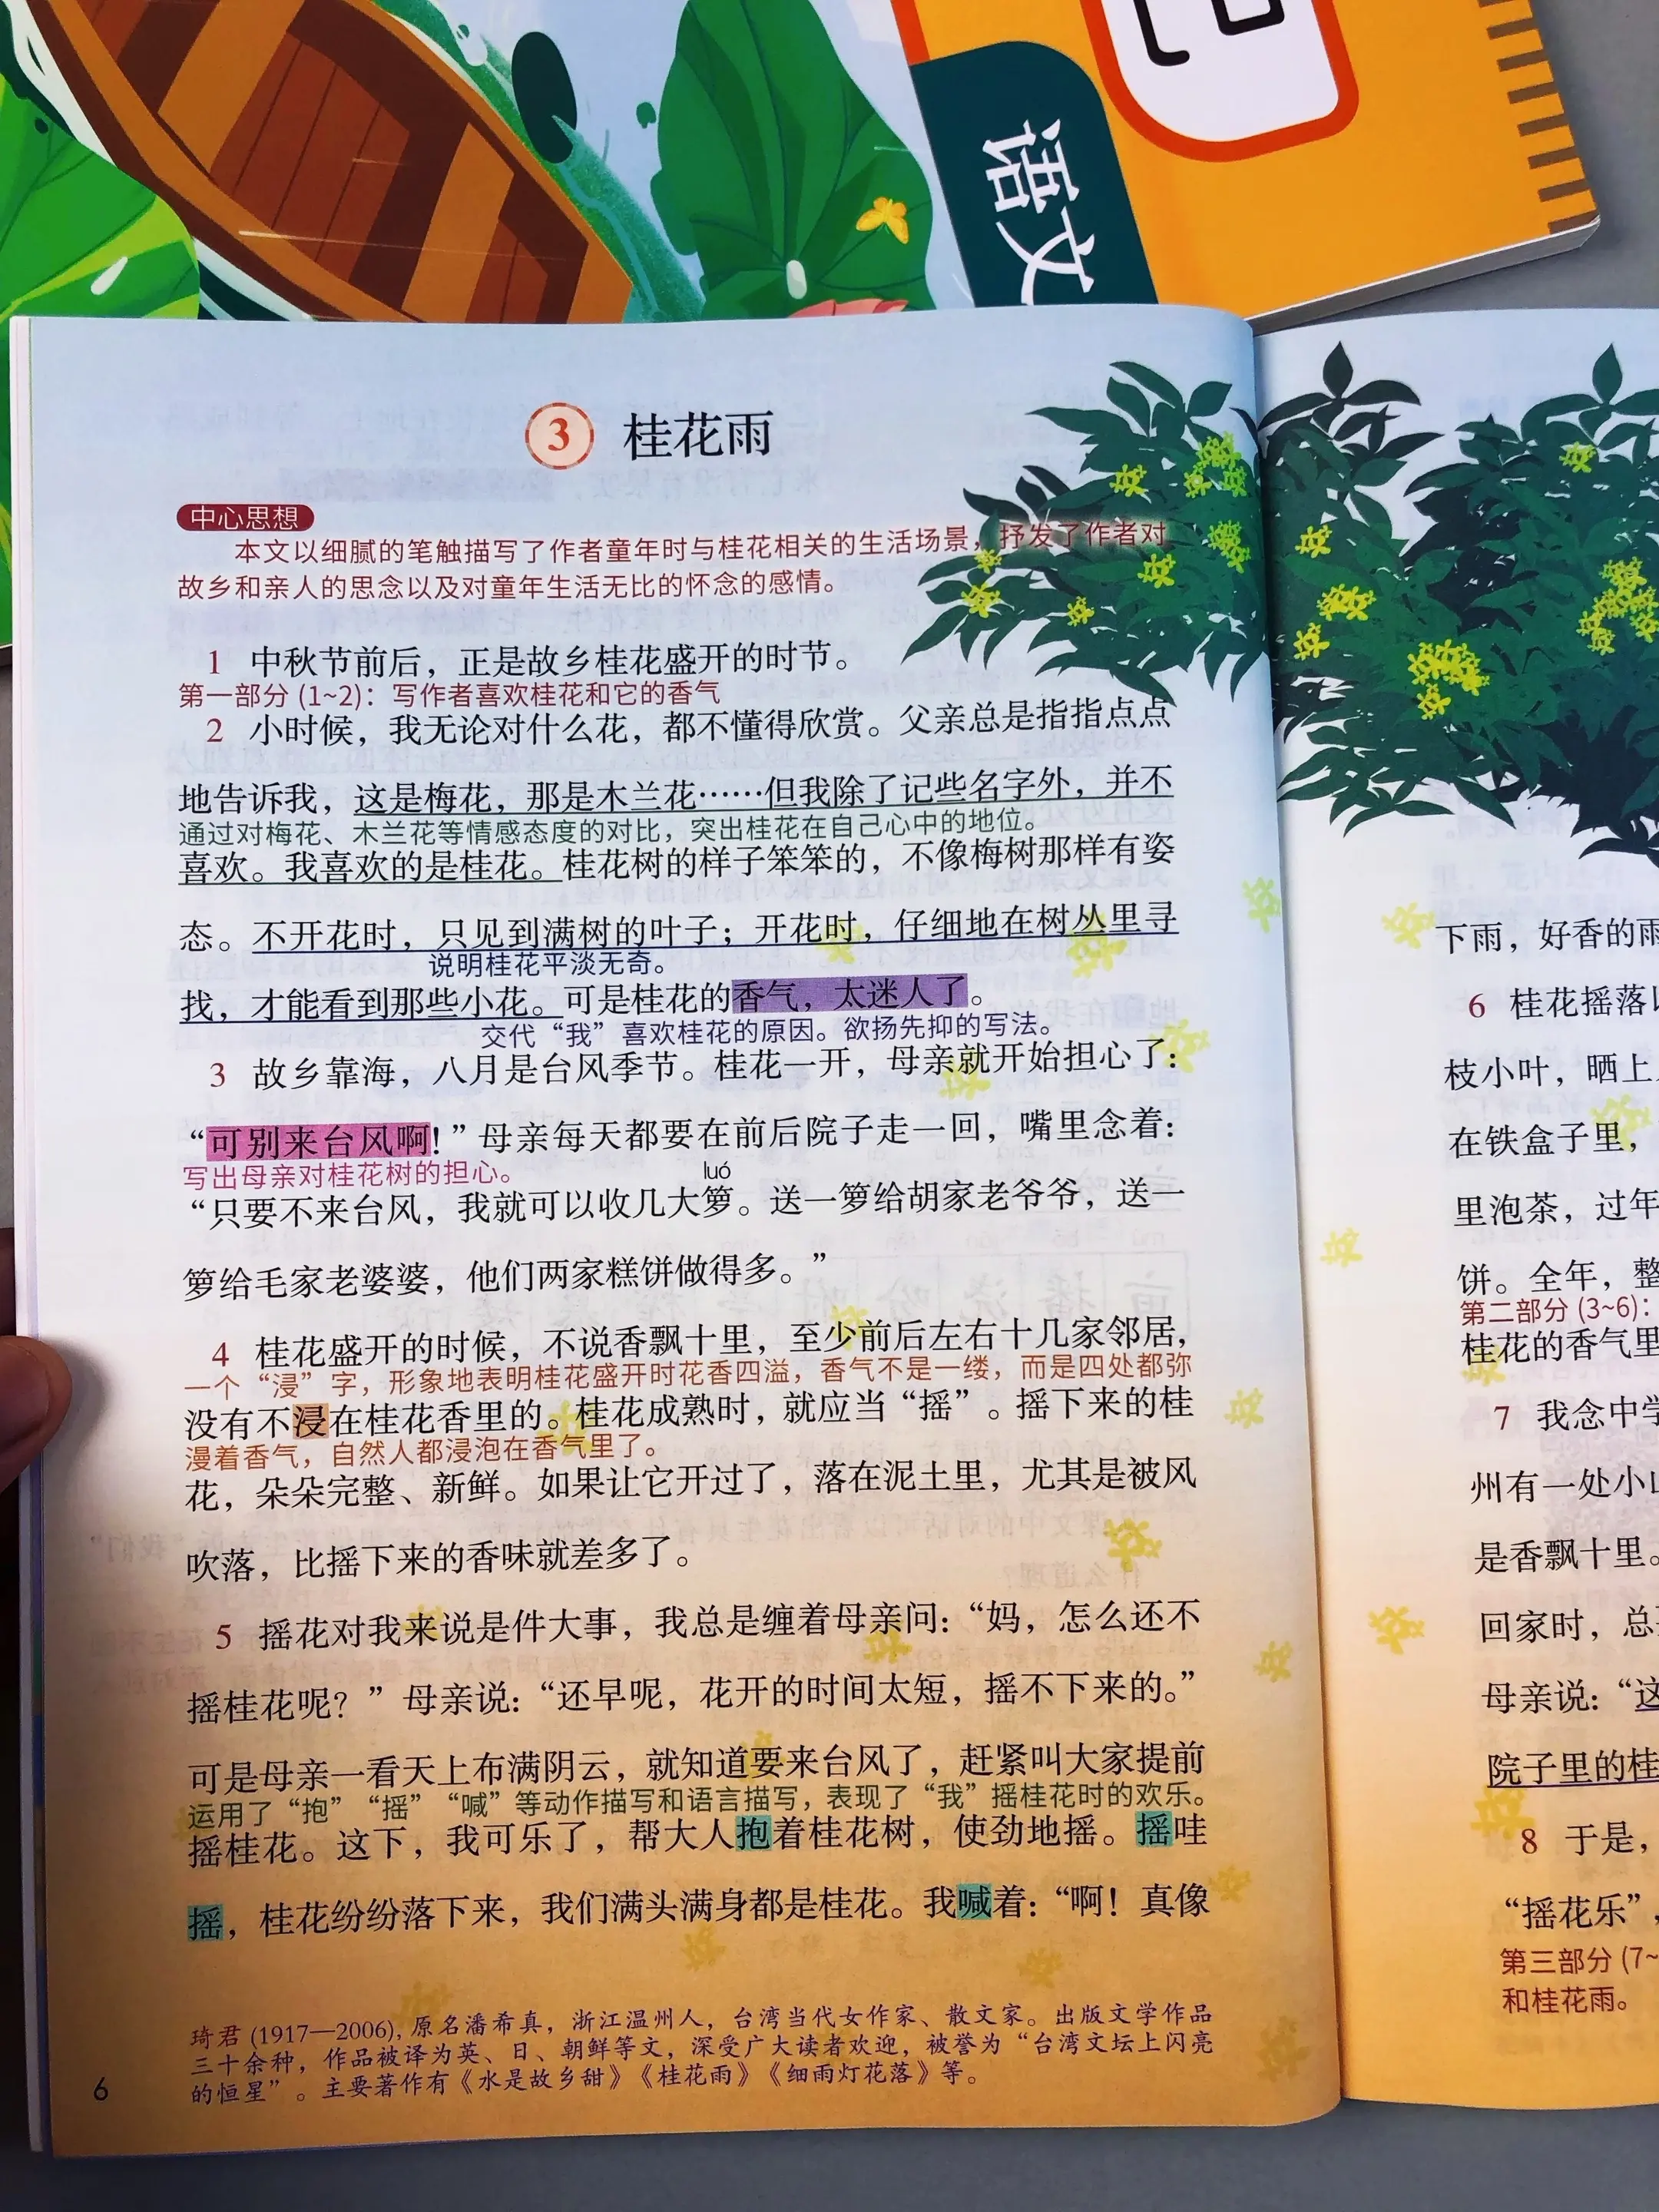 语文
3 桂花雨
中心思想
本文以细腻的笔触描写了作者童年时与桂花相关的生活场景，抒发了作者对
故乡和亲人的思念以及对童年生活无比的怀念的感情。
1 中秋节前后，正是故乡桂花盛开的时节。
第一部分 (1~2)：写作者喜欢桂花和它的香气
2 小时候，我无论对什么花，都不懂得欣赏。父亲总是指指点点
地告诉我，这是梅花，那是木兰花……但我除了记些名字外，并不
通过对梅花、木兰花等情感态度的对比，突出桂花在自己心中的地位。
喜欢。我喜欢的是桂花。桂花树的样子笨笨的，不像梅树那样有姿
态。不开花时，只见到满树的叶子；开花时，仔细地在树丛里寻
说明桂花平淡无奇。
找，才能看到那些小花。可是桂花的香气，太迷人了。
交代“我”喜欢桂花的原因。欲扬先抑的写法。
3 故乡靠海，八月是台风季节。桂花一开，母亲就开始担心了：
“可别来台风啊！”母亲每天都要在前后院子走一回，嘴里念着：
写出母亲对桂花树的担心。
luó
“只要不来台风，我就可以收几大箩。送一箩给胡家老爷爷，送一
箩给毛家老婆婆，他们两家糕饼做得多。”
4 桂花盛开的时候，不说香飘十里，至少前后左右十几家邻居，
一个“浸”字，形象地表明桂花盛开时花香四溢，香气不是一缕，而是四处都弥
没有不浸在桂花香里的。桂花成熟时，就应当“摇”。摇下来的桂
漫着香气，自然人都浸泡在香气里了。
花，朵朵完整、新鲜。如果让它开过了，落在泥土里，尤其是被风
吹落，比摇下来的香味就差多了。
5 摇花对我来说是件大事，我总是缠着母亲问：“妈，怎么还不
摇桂花呢？”母亲说：“还早呢，花开的时间太短，摇不下来的。”
可是母亲一看天上布满阴云，就知道要来台风了，赶紧叫大家提前
运用了“抱”“摇”“喊”等动作描写和语言描写，表现了“我”摇桂花时的欢乐。
摇桂花。这下，我可乐了，帮大人抱着桂花树，使劲地摇。摇哇
摇，桂花纷纷落下来，我们满头满身都是桂花。我喊着：“啊！真像
琦君 (1917—2006)，原名潘希真，浙江温州人，台湾当代女作家、散文家。出版文学作品
三十余种，作品被译为英、日、朝鲜等文，深受广大读者欢迎，被誉为“台湾文坛上闪亮
的恒星”。主要著作有《水是故乡甜》《桂花雨》《细雨灯花落》等。
6
下雨，好香的雨
6 桂花摇落
枝小叶，晒上
在铁盒子里，
里泡茶，过年
饼。全年，整
第二部分 (3~6)：
桂花的香气里
7 我念中学
州有一处小山
是香飘十里。
回家时，总
母亲说：“这
院子里的桂
8 于是，
“摇花乐”，
第三部分 (7~
和桂花雨。